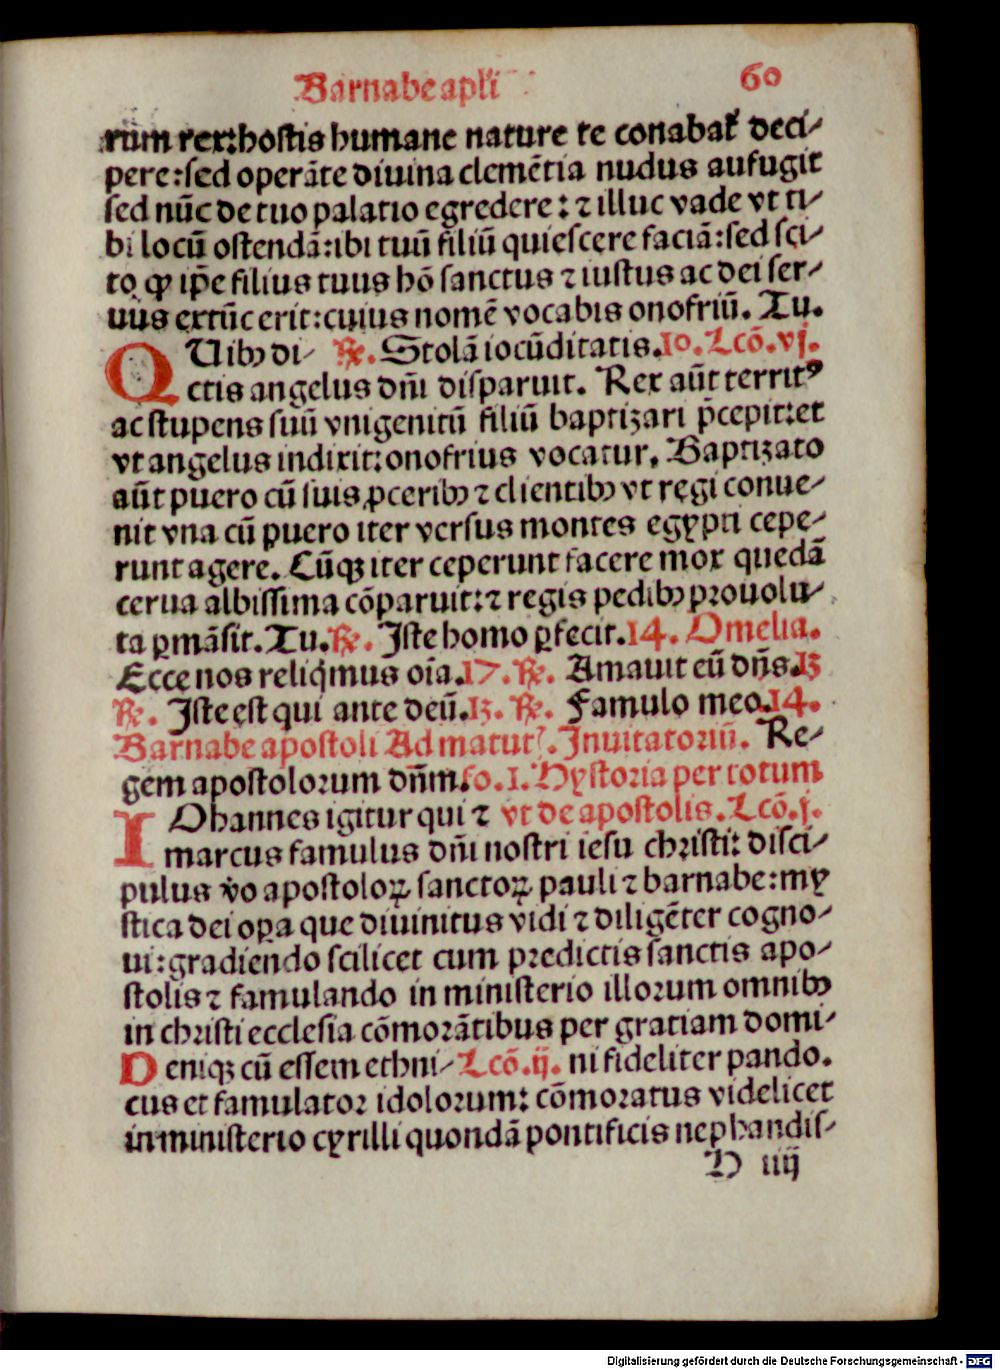 Barnabe apl'i 60
rum rex: hostis humane nature te conabat᷑ deci-
pere: sed operāte diuina clemētia nudus aufugit
sed nūc de tuo palatio egredere: ⁊ illuc vade vt ti-
bi locū ostendā: ibi tuū filiū quiescere faciā: sed sci-
to ꝙ ip̄e filius tuus hō sanctus ⁊ iustus ac dei ser-
uus extūc erit: cuius nomē vocabis onofriū. Tu.
QUibꝫ di- ℟. Stolā iocūditatis. 10. Lcō. vj.
ctis angelus dn̄i disparuit. Rex aūt territꝰ
ac stupens suū vnigenitū filiū baptizari p̄cepit: et
vt angelus indixit: onofrius vocatur. Baptizato
aūt puero cū suis ꝓceribꝫ ⁊ clientibꝫ vt regi conue-
nit vna cū puero iter versus montes egypti cepe-
runt agere. Cūqꝫ iter ceperunt facere mox quedā
cerua albissima cōparuit: ⁊ regis pedibꝫ prouolu-
ta ꝑmāsit. Tu. ℟. Iste homo ꝑfecit. 14. Omelia.
Ecce nos reliq̇mus oīa. 17. ℟. Amauit eū dn̄s. 13
℟. Iste est qui ante deū. 13. ℟. Famulo meo. 14.
Barnabe apostoli Ad matut᷑. Inuitatoriū. Re-
gem apostolorum dn̄m. fo. 1. Hystoria per totum
IOhannes igitur qui ⁊ vt de apostolis. Lcō. j.
marcus famulus dn̄i nostri iesu christi: disci-
pulus v̄o apostoloꝝ sanctoꝝ pauli ⁊ barnabe: my
stica dei oꝑa que diuinitus vidi ⁊ diligēter cogno-
ui: gradiendo scilicet cum predictis sanctis apo-
stolis ⁊ famulando in ministerio illorum omnibꝫ
in christi ecclesia cōmorātibus per gratiam domi-
Deniqꝫ cū essem ethni- Lcō. ij. ni fideliter pando.
cus et famulator idolorum: cōmoratus videlicet
in ministerio cyrilli quondā pontificis nephandis-
H iiij
Digitalisierung gefördert durch die Deutsche Forschungsgemeinschaft - DFG